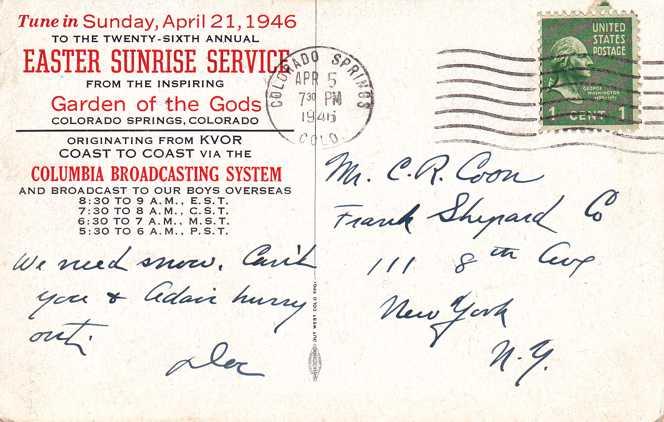 Tune in Sunday, April 21, 1946
TO THE TWENTY-SIXTH ANNUAL
EASTER SUNRISE SERVICE
FROM THE INSPIRING
Garden of the Gods
COLORADO SPRINGS, COLORADO
ORIGINATING FROM KVOR
COAST TO COAST VIA THE
COLUMBIA BROADCASTING SYSTEM
AND BROADCAST TO OUR BOYS OVERSEAS
8:30 TO 9 A.M., E.S.T.
7:30 TO 8 A.M., C.S.T.
6:30 TO 7 A.M., M.S.T.
5:30 TO 6 A.M., P.S.T.
We need snow. Can't
you & Adair hurry
out.
Doc
COLORADO SPRINGS
APR 5
7 30 PM
1946
COLO.
UNITED
STATES
POSTAGE
GEORGE
WASHINGTON
1 CENT 1
Mr. C. R. Coon
Frank Shepard Co
111 8th Ave
New York
N.Y.